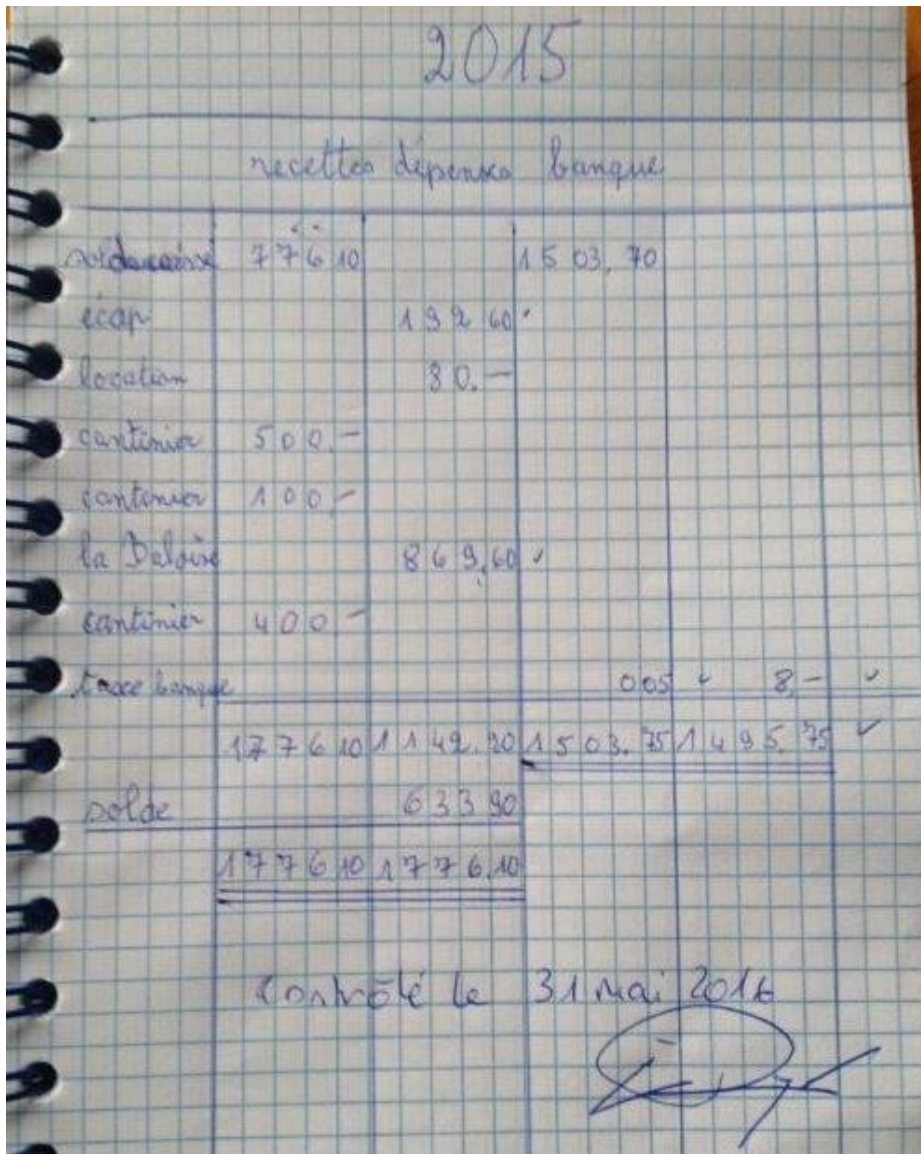 2015
recettes dépenses banque
solde caisse 776 10 1503.70
écap 192 60
location 80.—
cantinier 500.—
cantinier 100.—
la Baloise 869.60
cantinier 400.—
taxe banque 0 05 8.—
1776 10 1142.20 1503.75 1495.75
solde 633 90
1776 10 1776.10
Contrôlé le 31 mai 2016